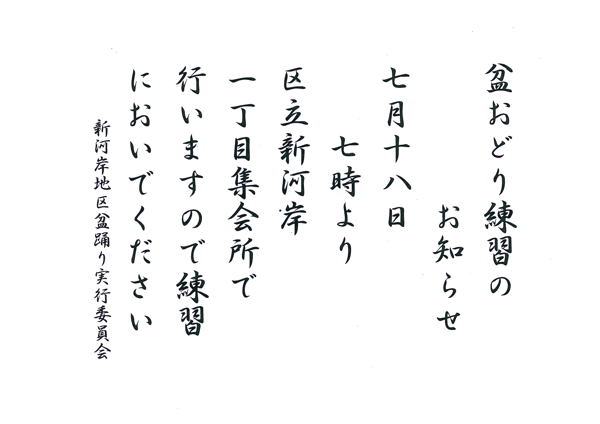 盆おどり練習の
お知らせ
七月十八日
七時より
区立新河岸
一丁目集会所で
行いますので練習
においでください
新河岸地区盆踊り実行委員会